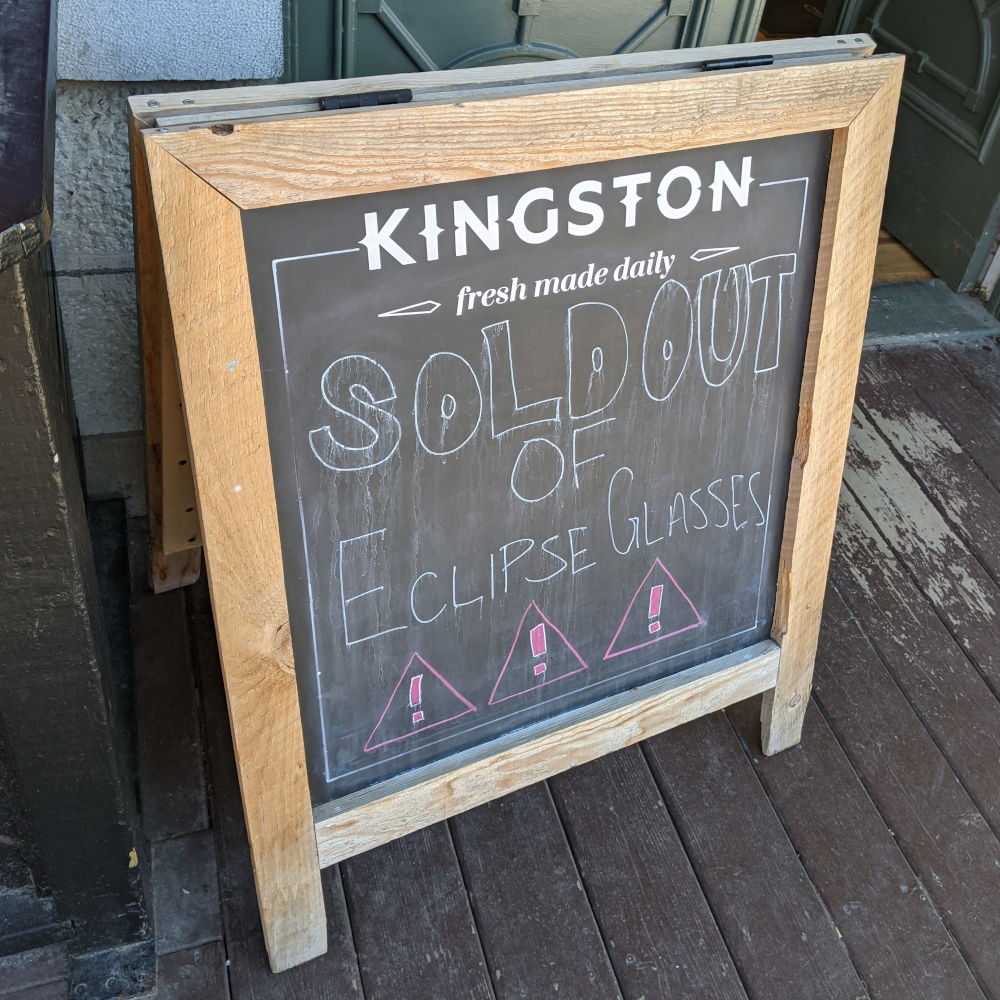 KINGSTON
fresh made daily
SOLD OUT
OF
ECLIPSE GLASSES
! ! !